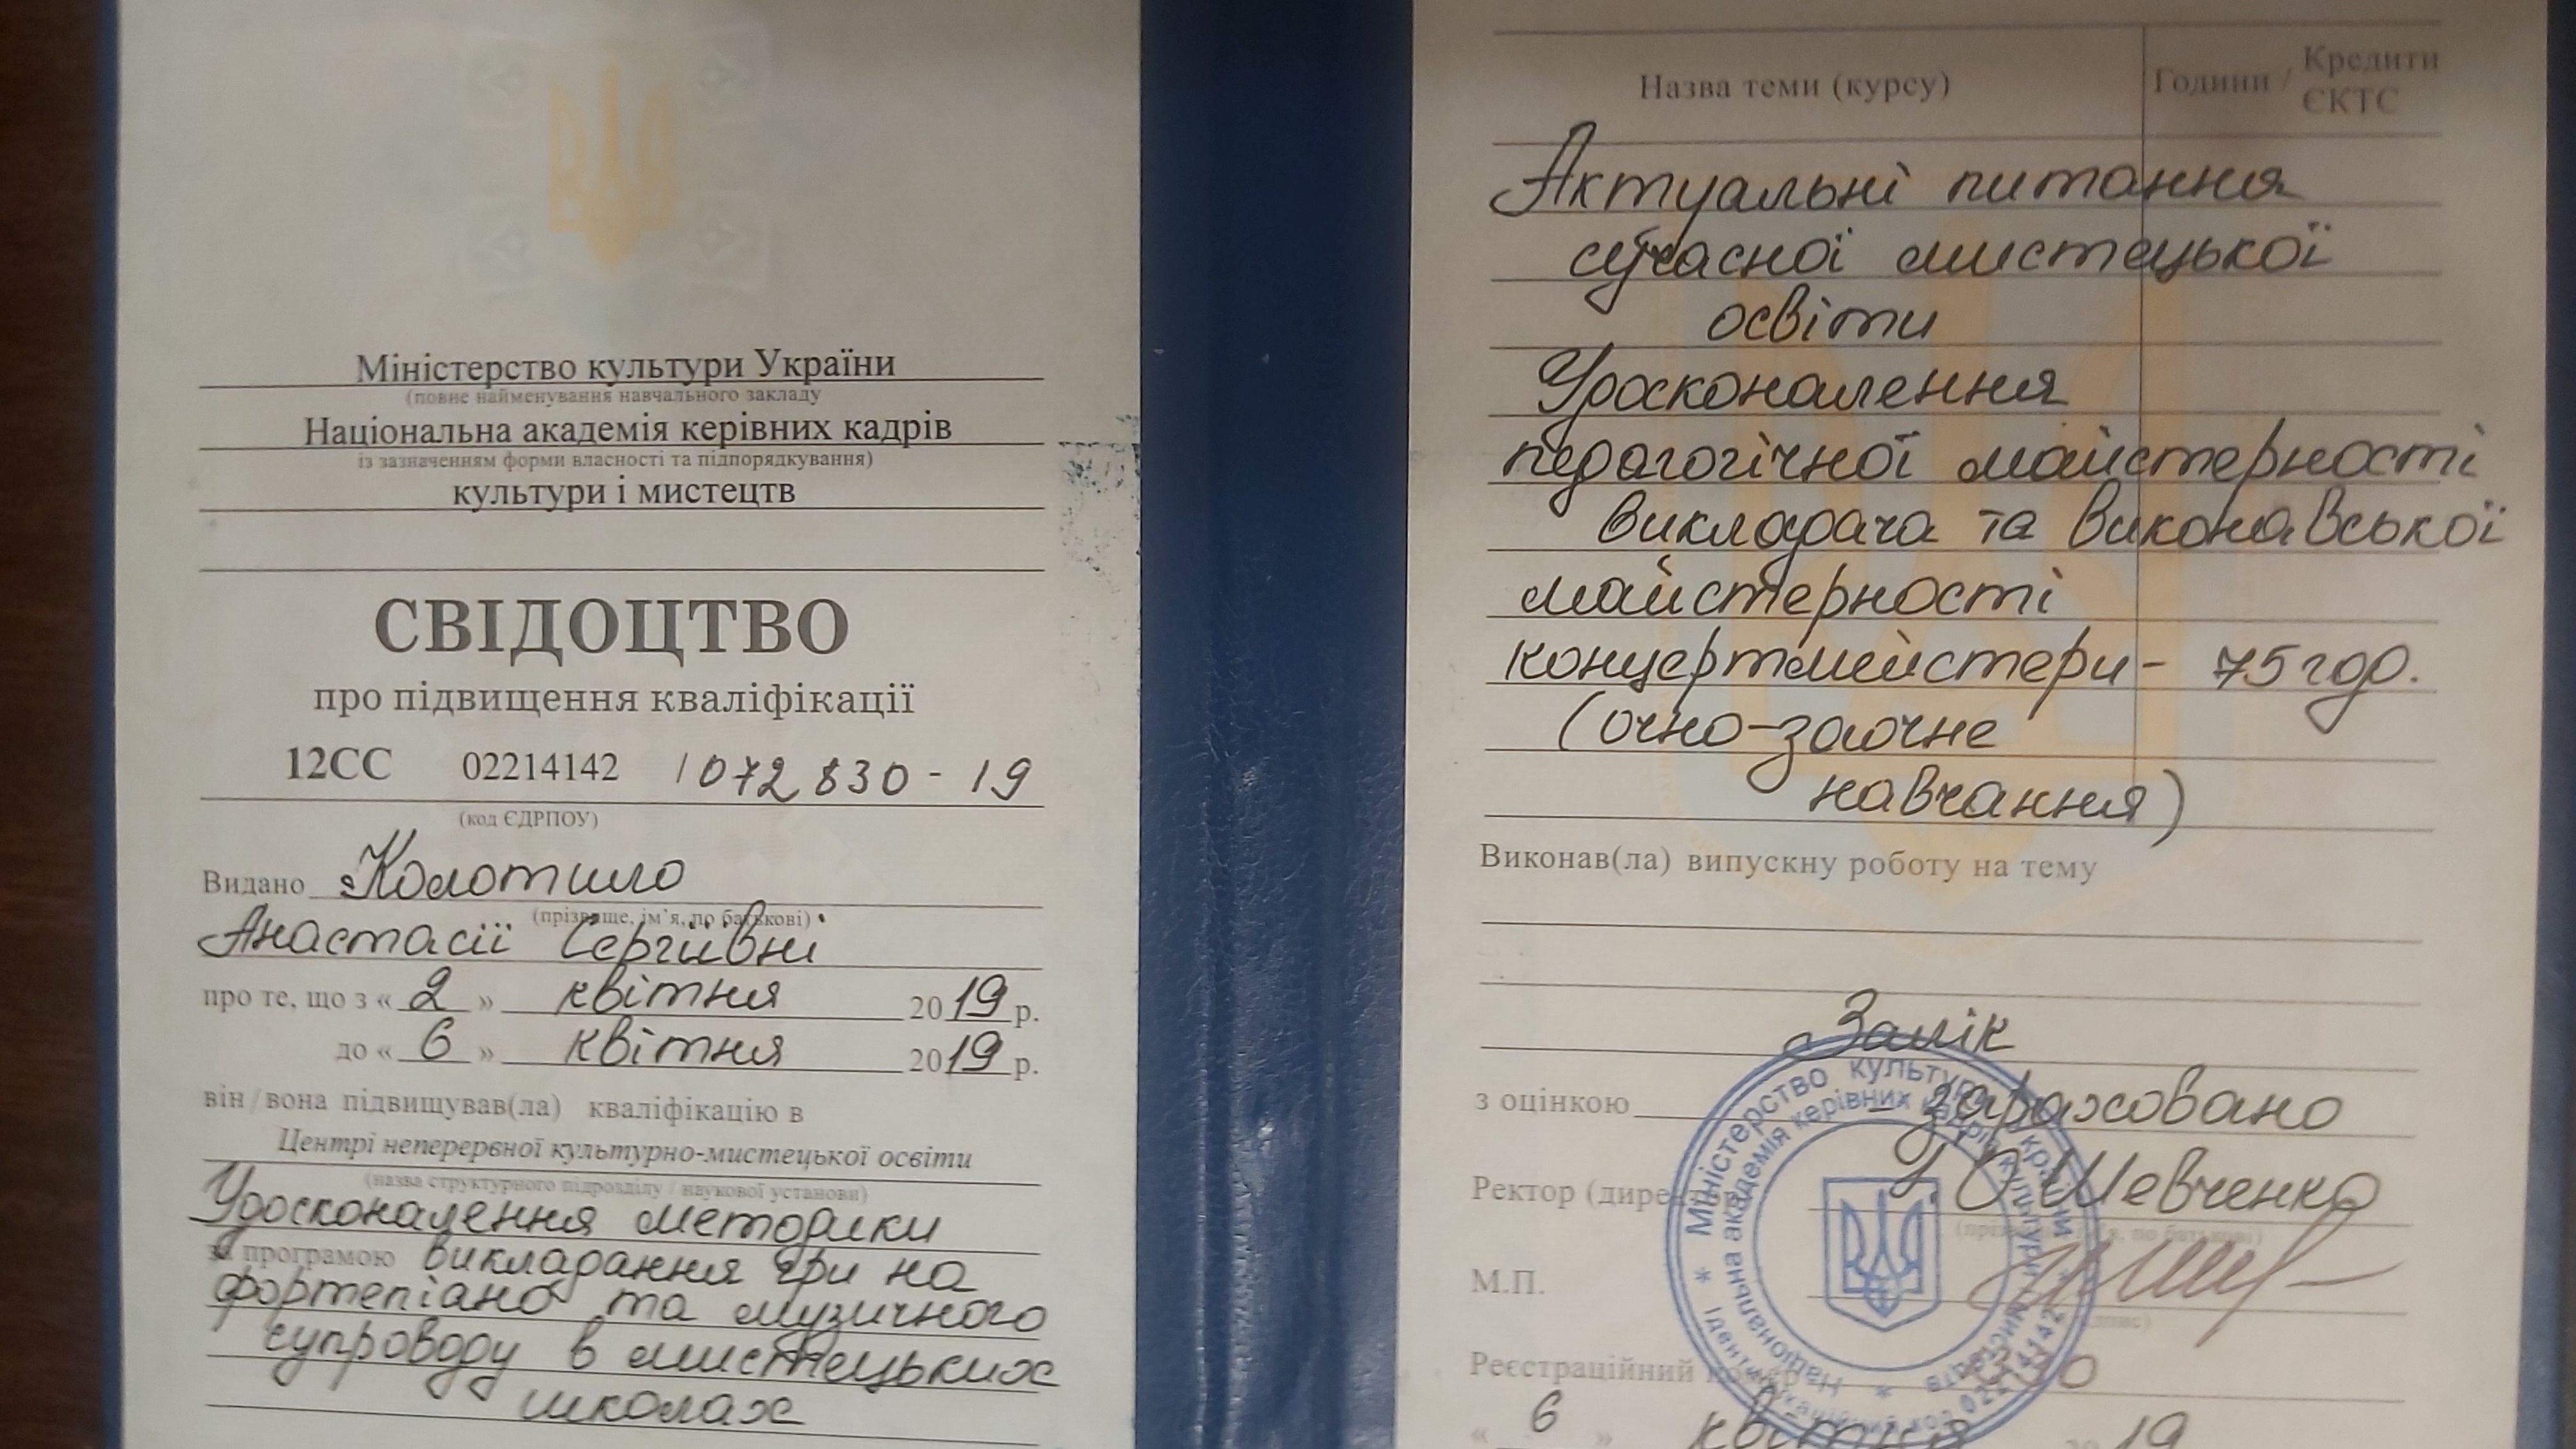 Міністерство культури України
(повне найменування навчального закладу
Національна академія керівних кадрів
із зазначенням форми власності та підпорядкування)
культури і мистецтв
СВІДОЦТВО
про підвищення кваліфікації
12СС 02214142 / 072830-19
(код ЄДРПОУ)
Видано Колотило
(прізвище, ім’я, по батькові)
Анастасії Сергіївні
про те, що з « 2 » квітня 2019 р.
до « 6 » квітня 2019 р.
він/вона підвищував(ла) кваліфікацію в
Центрі неперервної культурно-мистецької освіти
(назва структурного підрозділу / наукової установи)
Удосконалення методики
за програмою викладання гри на
фортепіано та музичного
супроводу в мистецьких
школах
Назва теми (курсу) Години / Кредити ЄКТС
Актуальні питання
сучасної мистецької
освіти
Удосконалення
педагогічної майстерності
викладача та виконавської
майстерності
концертмейстери - 75 год.
(очно-заочне
навчання)
Виконав(ла) випускну роботу на тему
Залік
з оцінкою - зараховано
Ректор О Шевченко
М.П.
Реєстраційний номер
« 6 » квітня 2019
Міністерство культури України
Національна академія керівних кадрів культури і мистецтв
Ідентифікаційний код 02214142